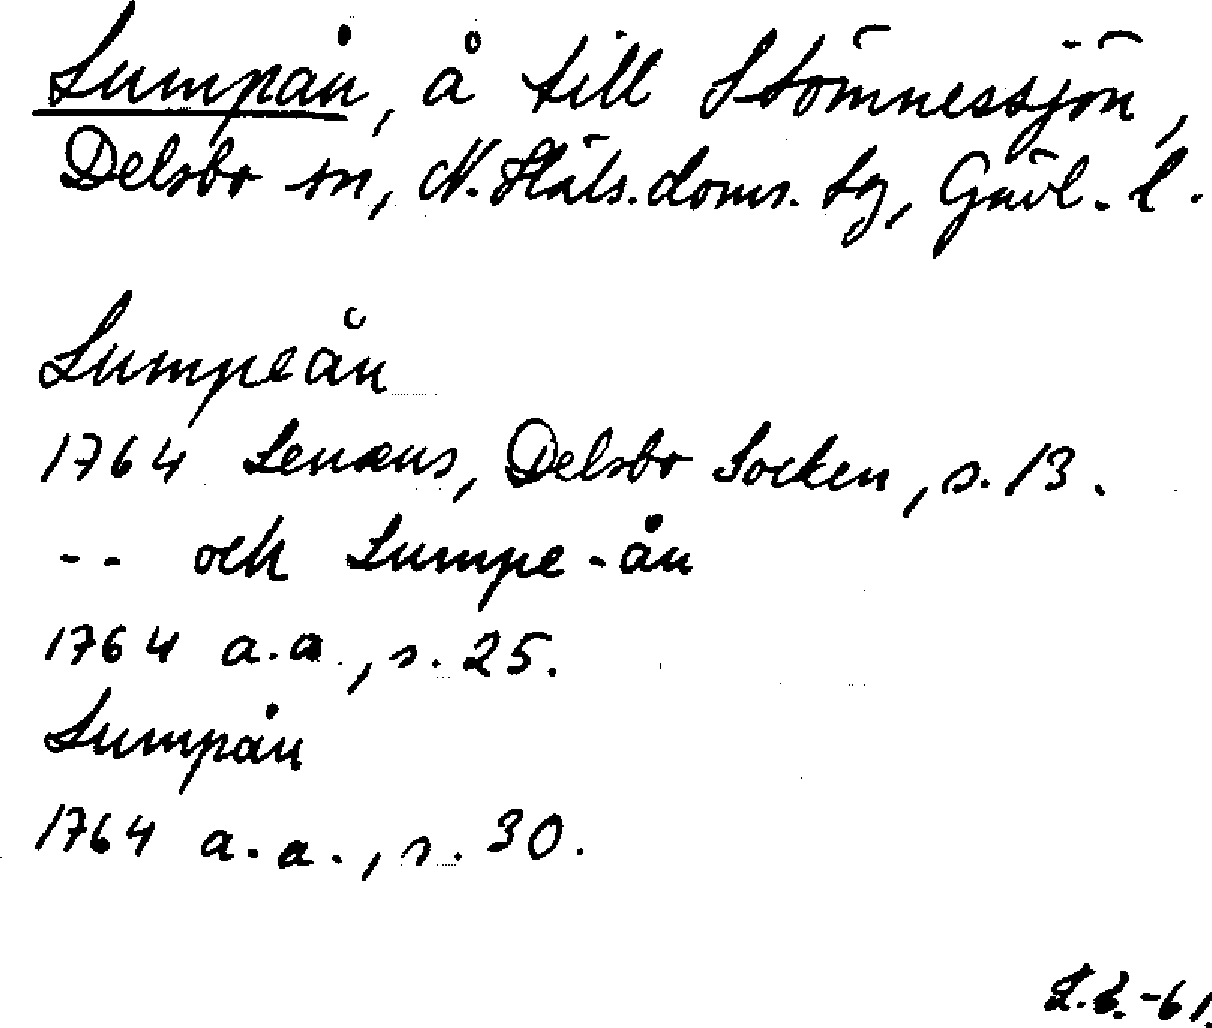 Lumpån, å till Stömnessjön,
Delsbo sn, N. Häls. doms. tg, Gävl. l.
Lumpeån
1764 Lenæus, Delsbo Socken, s. 13.
-- och Lumpe-ån
1764 a.a., s. 25.
Lumpån
1764 a.a., s. 30.
-61.